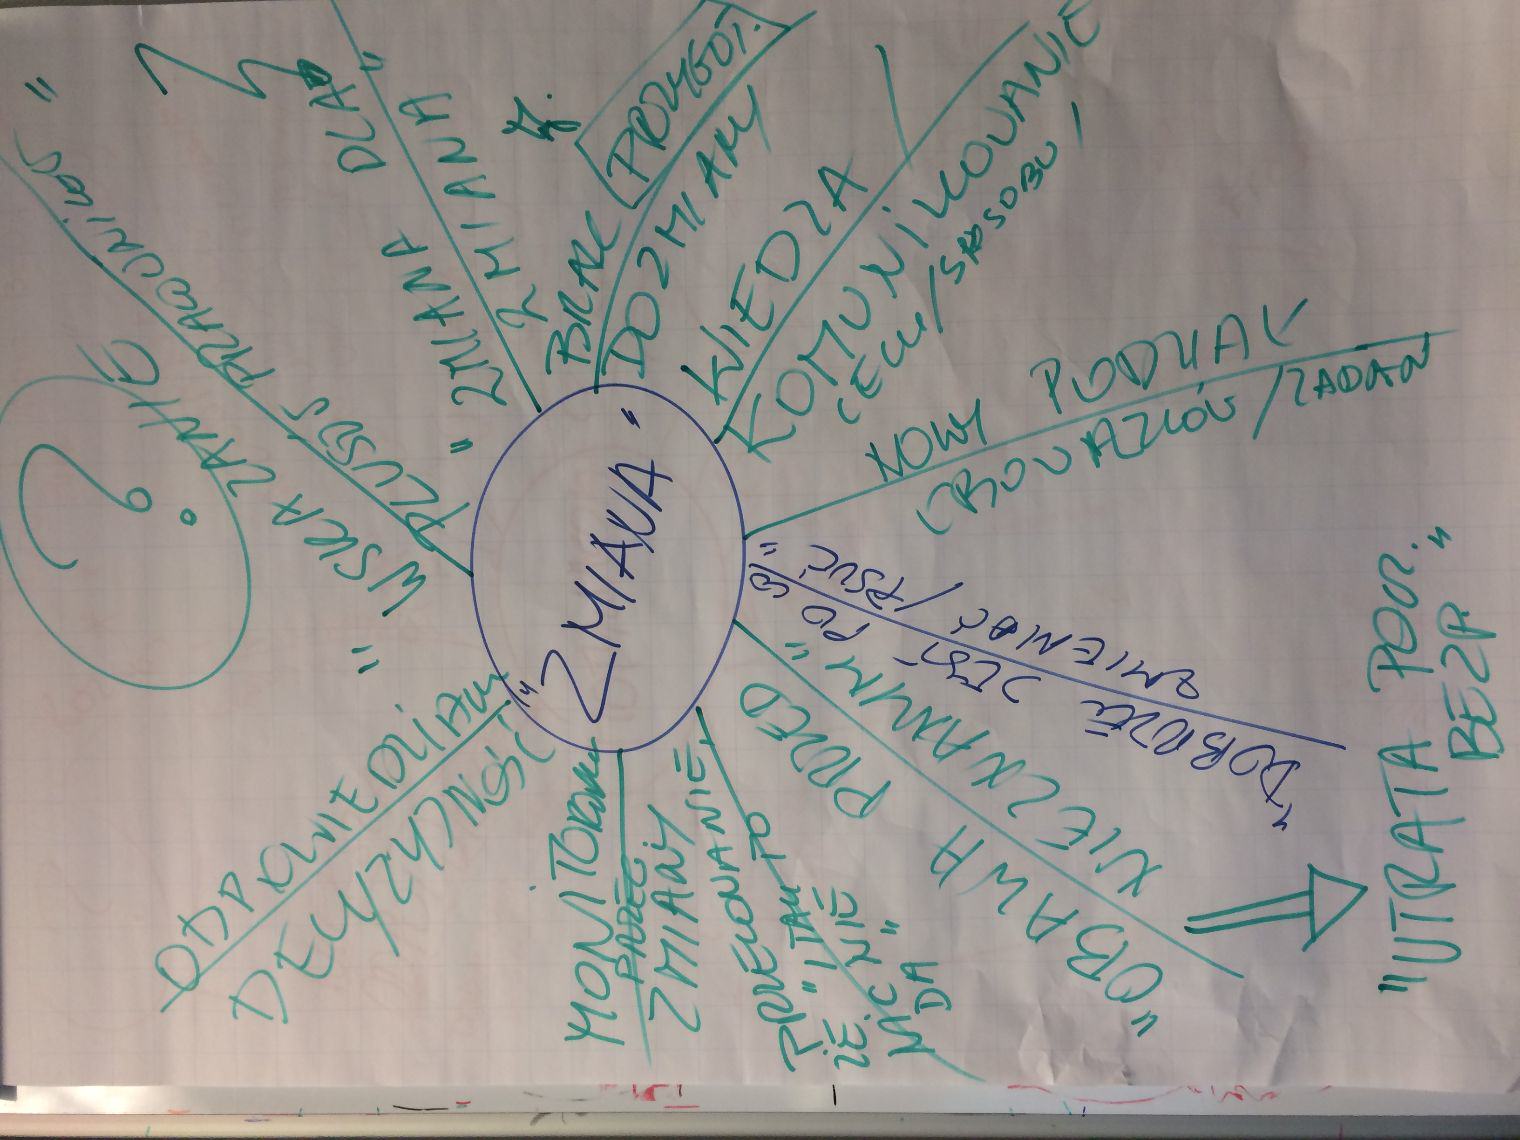 "ZMIANA"
BRAK PRZYGOT.
DO ZMIANY
WIEDZA
KOMUNIKOWANIE
CELU / SPOSOBU /
NOWY PODZIAŁ
OBOWIĄZKÓW / ZADAŃ
"DOBRZE JEST PO CO
ZMIENIAĆ / PSUĆ"
"OBAWA PRZED
NIEZNANYM"
"UTRATA POCZ.
BEZP."
PRZEKONANIE,
ŻE "I TAK TO
NIC NIE
DA"
MONITORING
PRZED
ZMIANY
ODPOWIEDZIALNY
DECYZYJNOŚĆ
"WSKAZANIE
PLUSÓW PRACOWNIKÓW"
?
"ZMIANA DLA
ZMIANA"